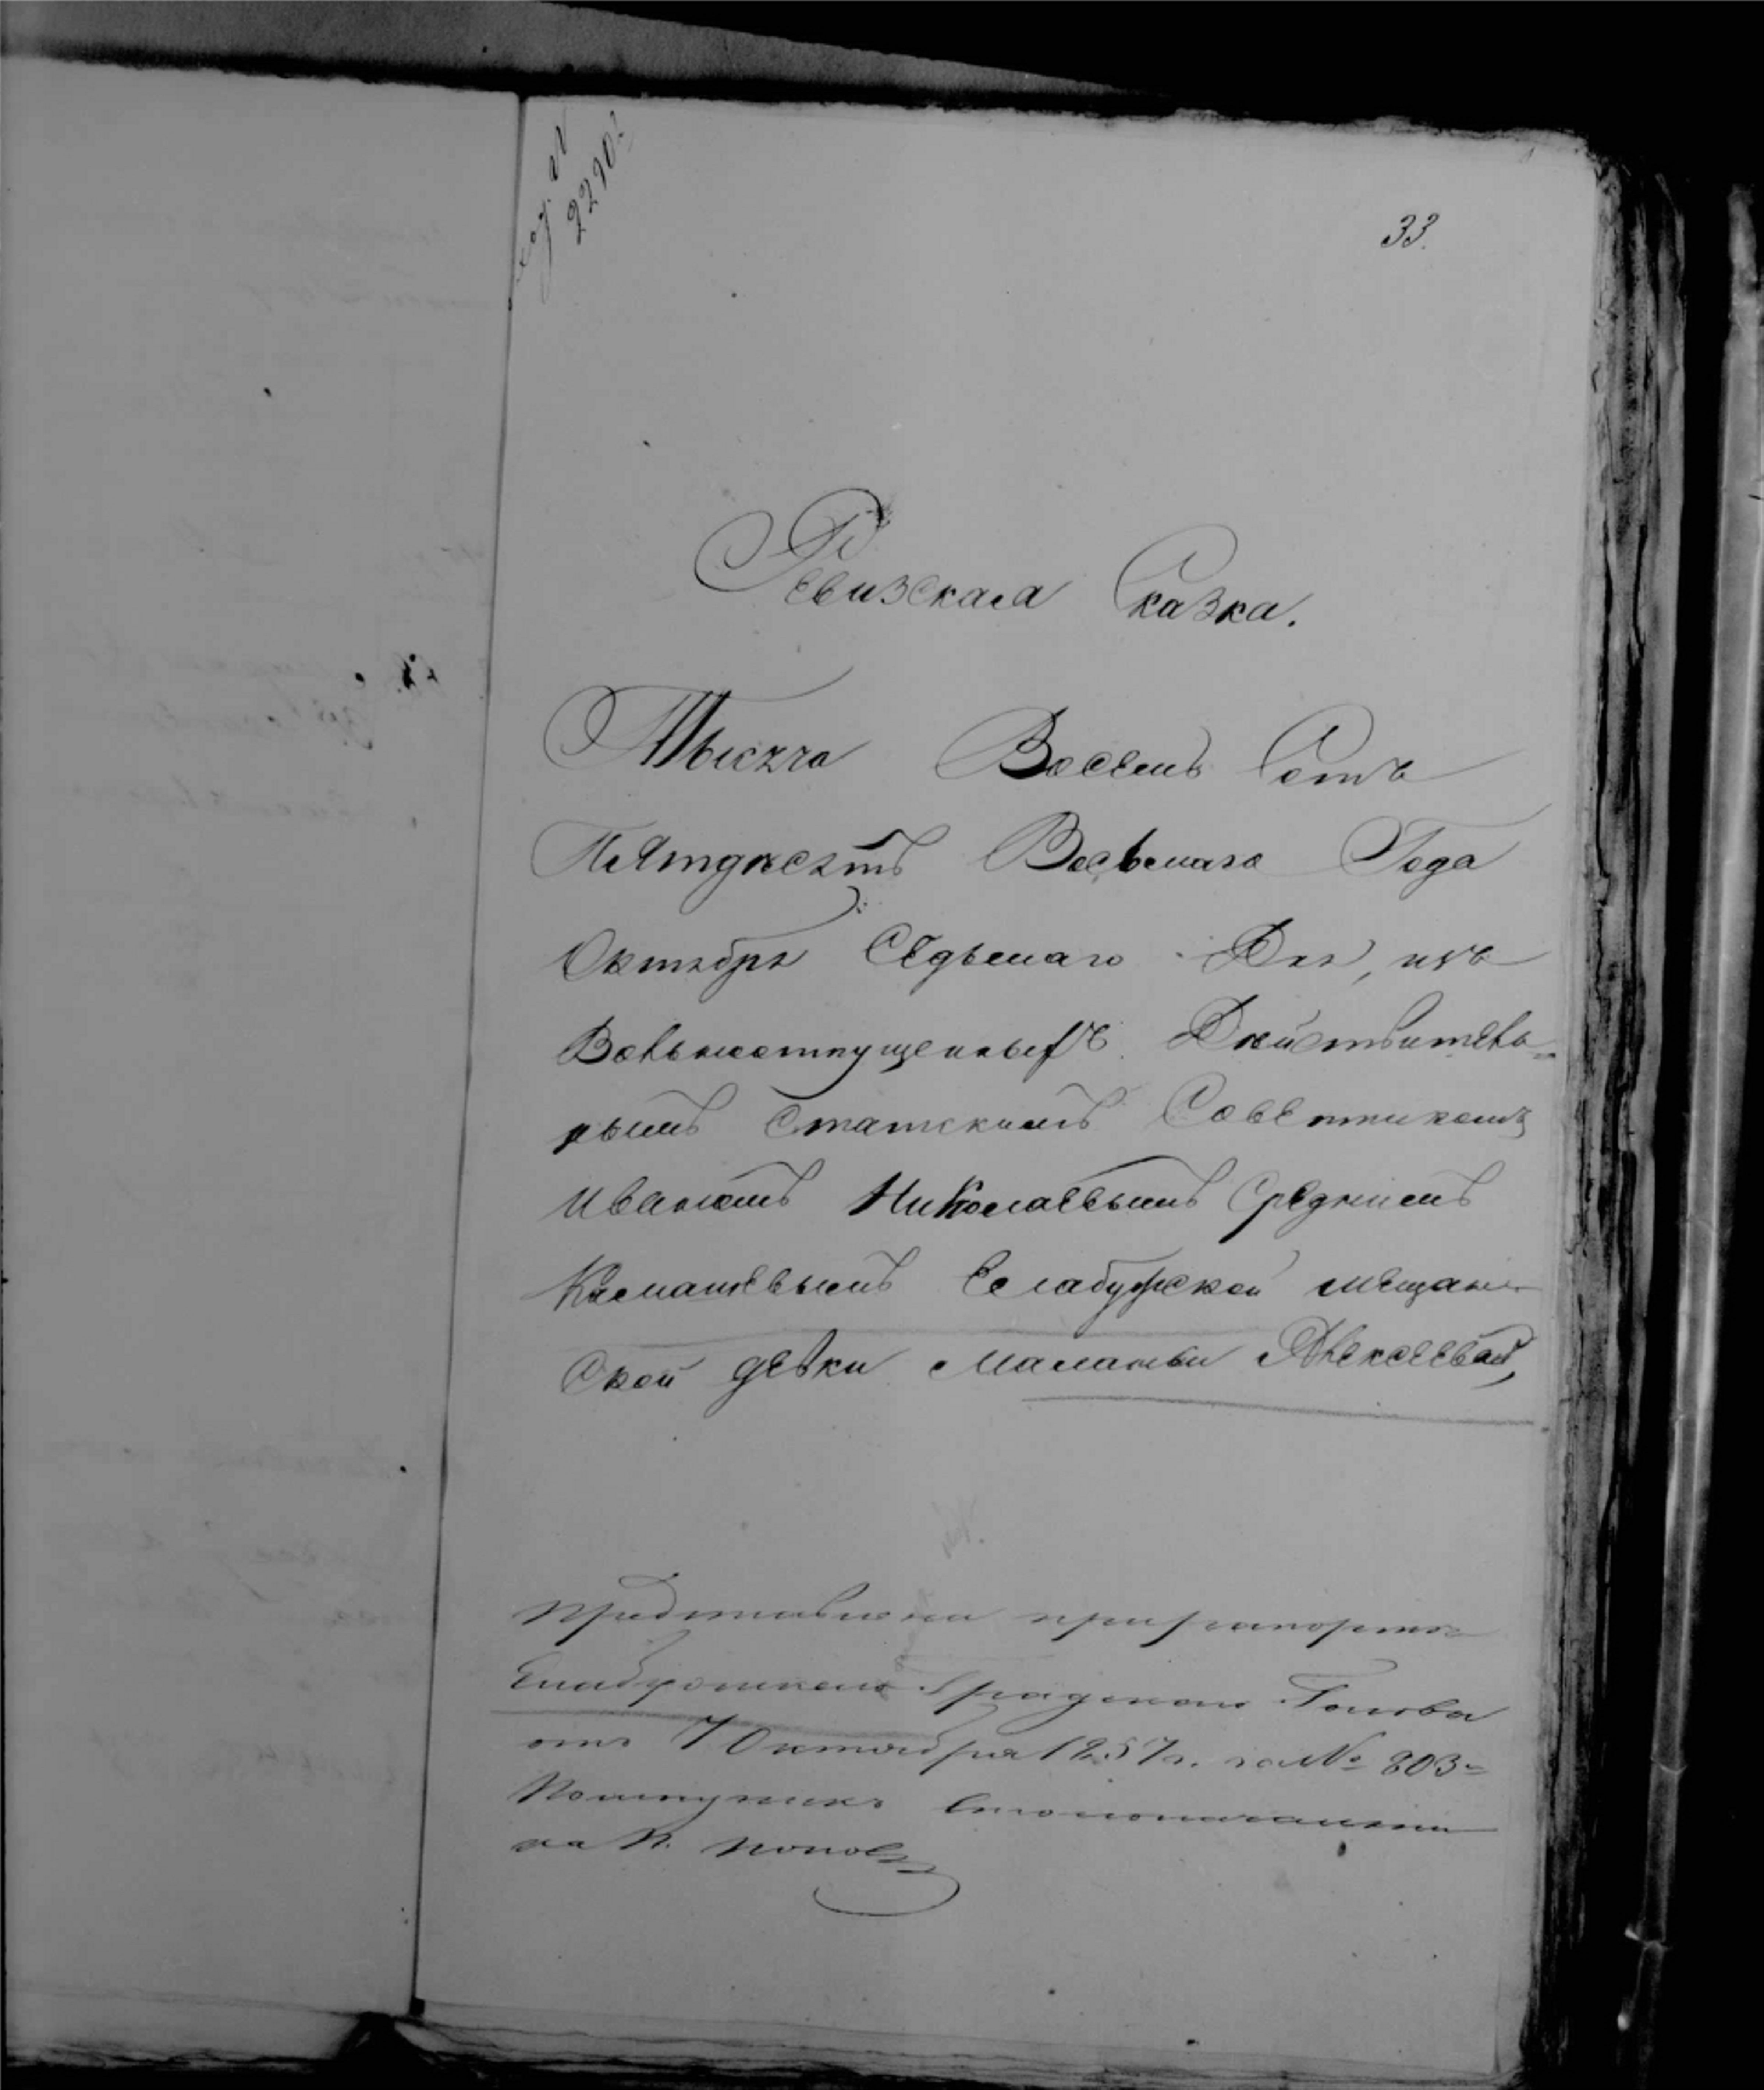 2290
33.
Ревизская Сказка.
Тысяча Восемь Сотъ
Пятдесятъ Восьмаго Года
Октября Седьмаго Дня, изъ
Вольноотпущенныхъ Действитель-
нымъ Статскимъ Советникомъ
Иваномъ Николаевымъ Среднимъ
Камашевымъ Елабужской мещан-
ской девки Маланьи Алексеевой,
представлена при рапорте
Елабужскаго Градскаго Головы
отъ 7 Октября 1857 г. за № 803
Столоначальни
ка П. Поповъ